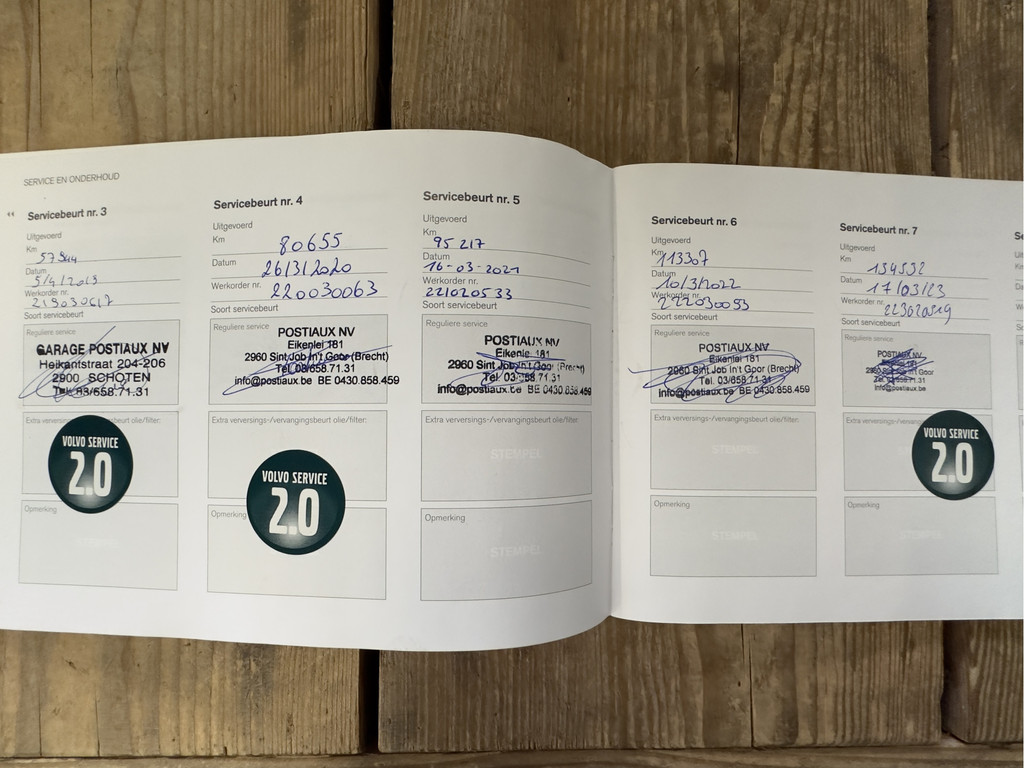 SERVICE EN ONDERHOUD
Servicebeurt nr. 3
Uitgevoerd
Km
57944
Datum
5/4/2019
Werkorder nr.
219030617
Soort servicebeurt
Reguliere service
GARAGE POSTIAUX NV
Heikantstraat 204-206
2900 SCHOTEN
Tel. 03/658.71.31
Extra verversings-/vervangingsbeurt olie/filter:
VOLVO SERVICE
2.0
Opmerking
STEMPEL
Servicebeurt nr. 4
Uitgevoerd
Km
80655
Datum
26/3/2020
Werkorder nr.
220030063
Soort servicebeurt
Reguliere service
POSTIAUX NV
Eikenlei 181
2960 Sint Job In't Goor (Brecht)
Tel. 03/658.71.31
info@postiaux.be BE 0430.858.459
Extra verversings-/vervangingsbeurt olie/filter:
VOLVO SERVICE
2.0
Opmerking
Servicebeurt nr. 5
Uitgevoerd
Km
95 217
Datum
16-03-2021
Werkorder nr.
221020533
Soort servicebeurt
Reguliere service
POSTIAUX NV
Eikenlei 181
2960 Sint Job In't Goor (Brecht)
Tel. 03/658.71.31
info@postiaux.be BE 0430.858.459
Extra verversings-/vervangingsbeurt olie/filter:
STEMPEL
Opmerking
STEMPEL
Servicebeurt nr. 6
Uitgevoerd
Km
113307
Datum
10/3/2022
Werkorder nr.
222030093
Soort servicebeurt
Reguliere service
POSTIAUX NV
Eikenlei 181
2960 Sint Job In't Goor (Brecht)
Tel. 03/658.71.31
info@postiaux.be BE 0430.858.459
Extra verversings-/vervangingsbeurt olie/filter:
STEMPEL
Opmerking
STEMPEL
Servicebeurt nr. 7
Uitgevoerd
Km
134532
Datum
17/03/23
Werkorder nr.
Soort servicebeurt
Reguliere service
POSTIAUX NV
info@postiaux.be
Extra
VOLVO SERVICE
2.0
Opmerking
STEMPEL